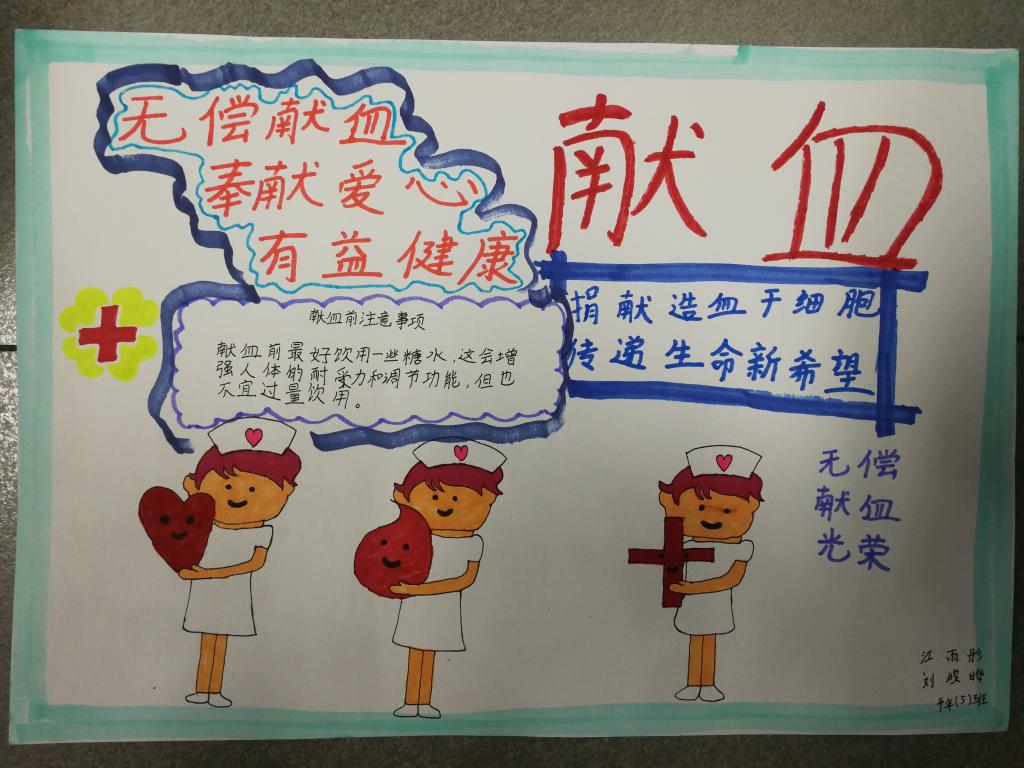 无偿献血
奉献爱心
有益健康
献血
捐献造血干细胞
传递生命新希望
献血前注意事项
献血前最好饮用一些糖水，这会增
强人体的耐受力和调节功能，但也
不宜过量饮用。
无偿
献血
光荣
江雨彤
刘骏
4年(5)班